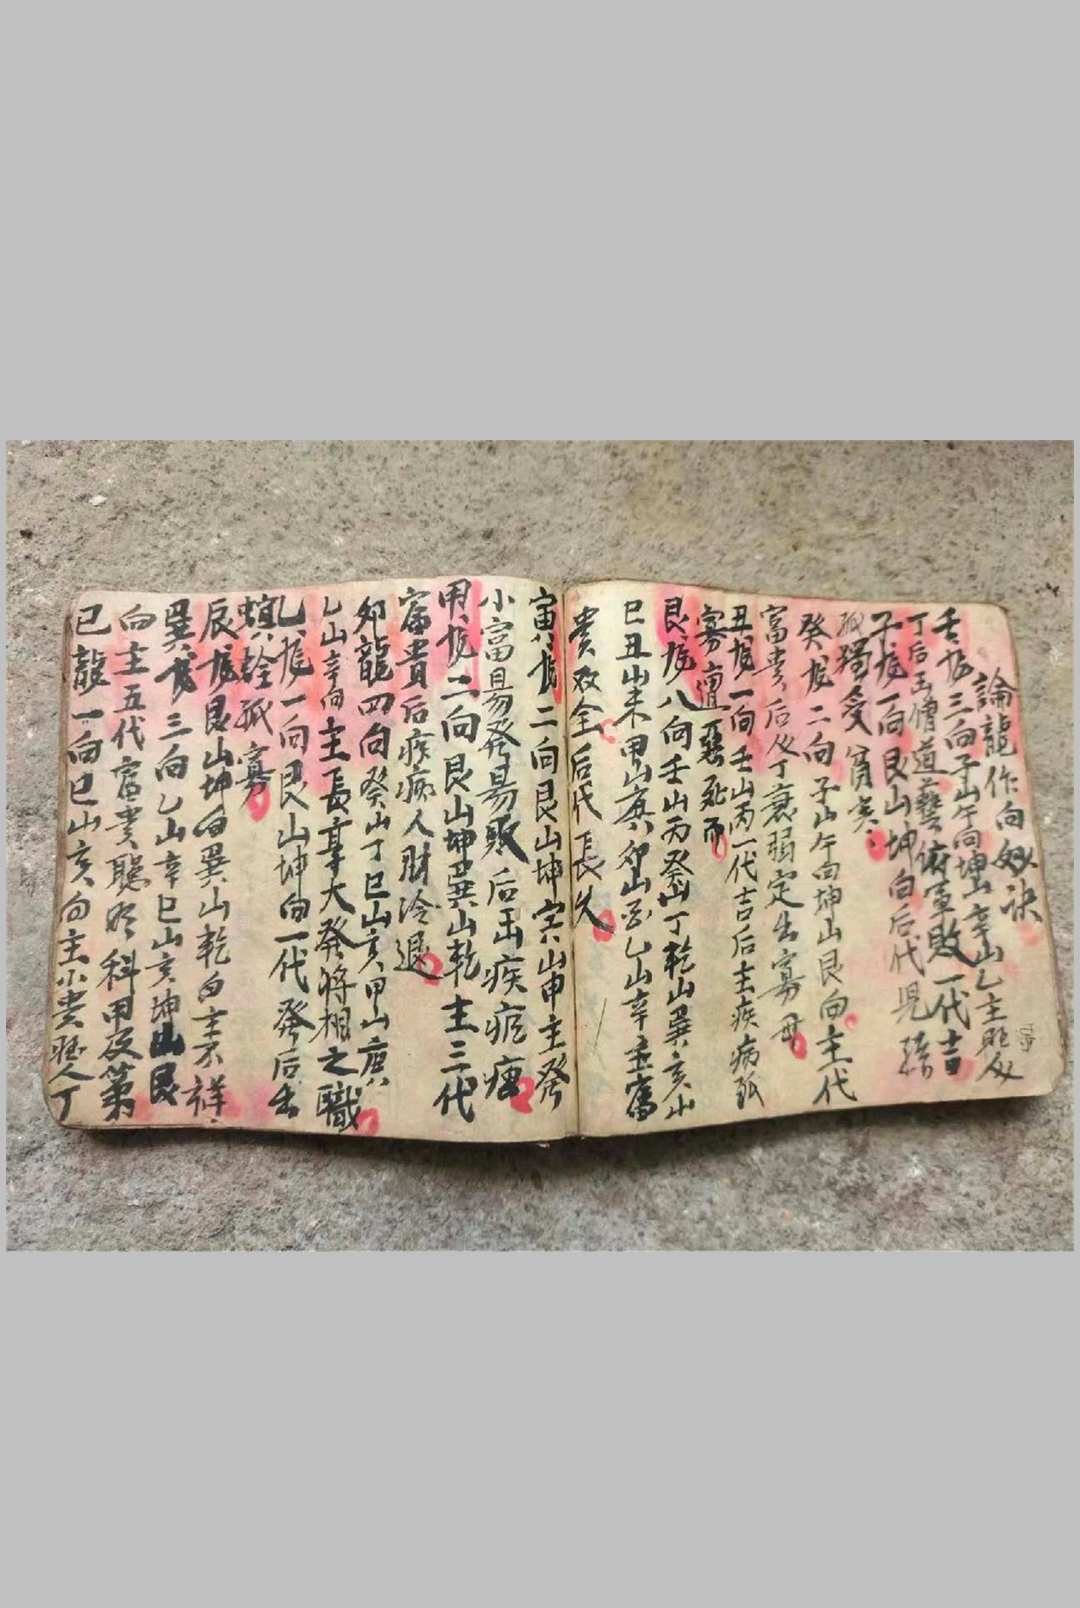 論龍作向妙訣
壬龍三向子山午向坤山辛山乙主貶父
丁后玉僧道藝術軍敗一代吉
子龍一向艮山坤向后代児孫
孤獨受貧矣
癸龍二向子山午向坤山艮向主代
富貴后父丁衰弱定出寡母
丑龍一向壬山丙一代吉后主疾病孤
寡遭惡死而
艮龍八向壬山丙癸山丁乾山巽亥山
巳丑山未甲山庚卯山酉乙山辛主富
貴双全后代長久
寅龍二向艮山坤向山申主發
小富易發易敗后玉疾病瘟
甲龍二向艮山坤巽山乾主三代
富貴后疾病人財冷退
卯龍四向癸山丁巳山亥甲山庚
乙山辛向主長享大發將相之職
乙龍一向艮山坤向一代發后出
螟蛉孤寡
辰龍艮山坤向巽山乾向主不祥
巽龍三向乙山辛巳山亥坤山艮
向主五代富貴聰明科甲及第
巳龍一向巳山亥向主小貴旺人丁